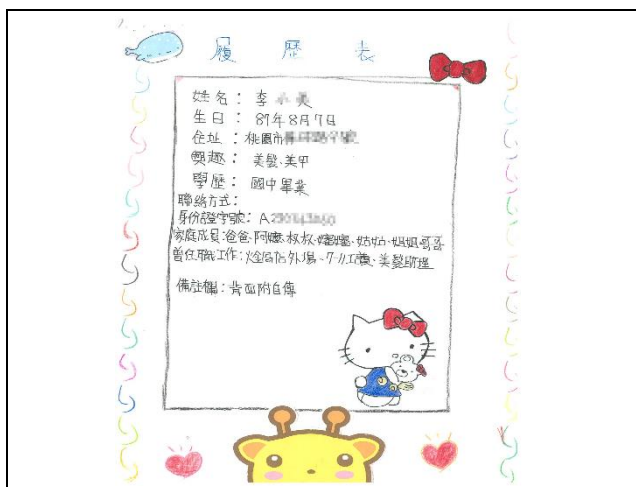 履歷表
姓名：李小美
生日：87年8月7日
住址：桃園市
興趣：美髮.美甲
學歷：國中畢業
聯絡方式：
身份證字號：A
家庭成員：爸爸.阿嬤.叔叔.嬸嬸.姑姑.媽媽.哥哥
曾任職工作：火鍋店外場、7-11工讀、美髮助理
備註欄：背面附自傳